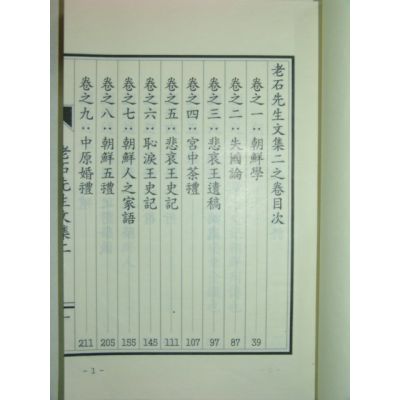 老石先生文集二之卷目次
卷之一：朝鮮學 39
卷之二：失國論 87
卷之三：悲哀王遺稿 97
卷之四：宮中茶禮 107
卷之五：悲哀王史記 111
卷之六：恥淚王史記 145
卷之七：朝鮮人之家語 155
卷之八：朝鮮五禮 205
卷之九：中原婚禮 211
老石先生文集二
一
- 1 -